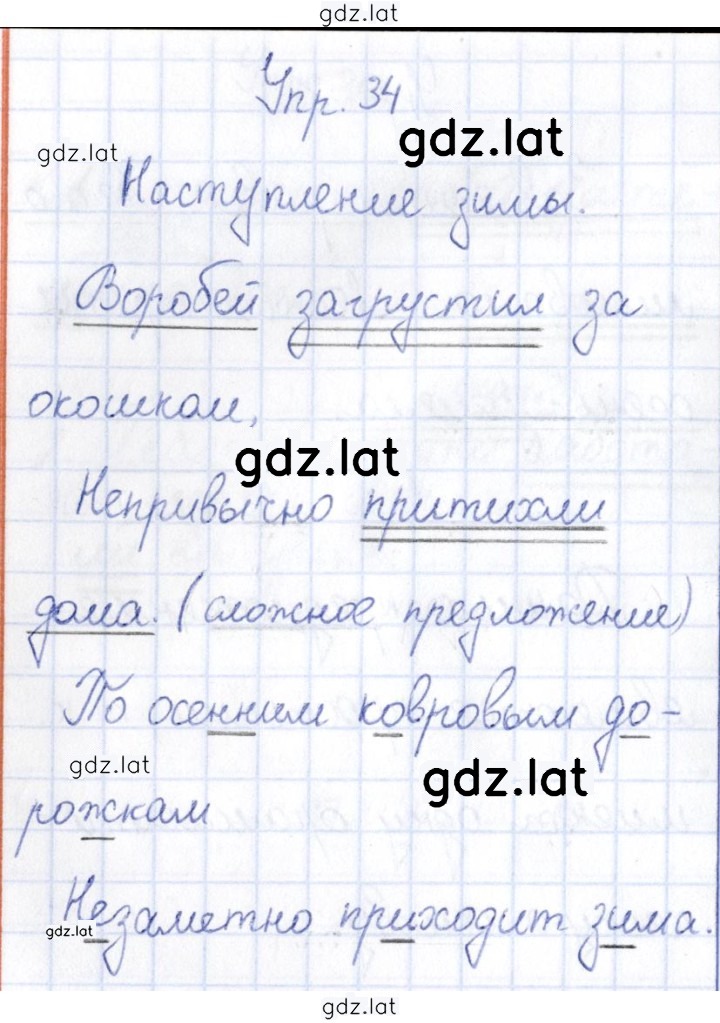 gdz.lat
Упр. 34
gdz.lat
gdz.lat
Наступление зимы.
Воробей загрустил за
окошком,
gdz.lat
Непривычно притихли
дома. (сложное предложение)
По осенним ковровым до-
gdz.lat
gdz.lat
рожкам
Незаметно приходит зима.
gdz.lat
gdz.lat